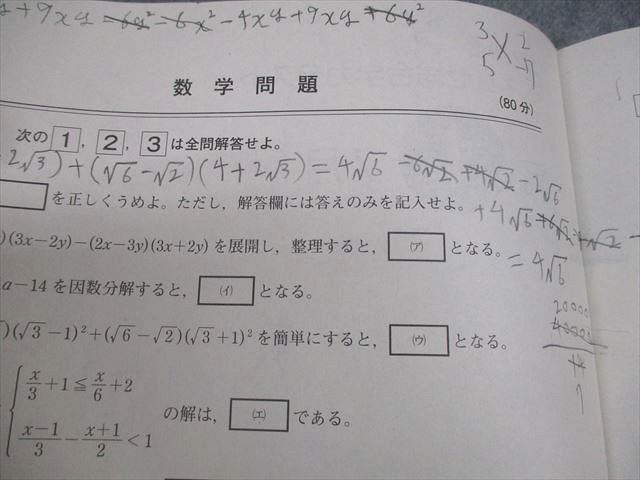 +9xy-6y²-6x²-4xy+9xy+6y²
3 2
5 -7
数学問題
(80分)
次の 1 , 2 , 3 は全問解答せよ。
2√3)+(√6-√2)(4+2√3)=4√6-6√2+4√2-2√6
を正しくうめよ。ただし,解答欄には答えのみを記入せよ。
+4√6+6√2-4√2-
)(3x-2y)-(2x-3y)(3x+2y)を展開し,整理すると, (ア) となる。
=4√6
a-14を因数分解すると, (イ) となる。
)(√3-1)²+(√6-√2)(√3+1)²を簡単にすると, (ウ) となる。
x/3+1≦x/6+2
(x-1)/3-(x+1)/2<1
の解は, (エ) である。